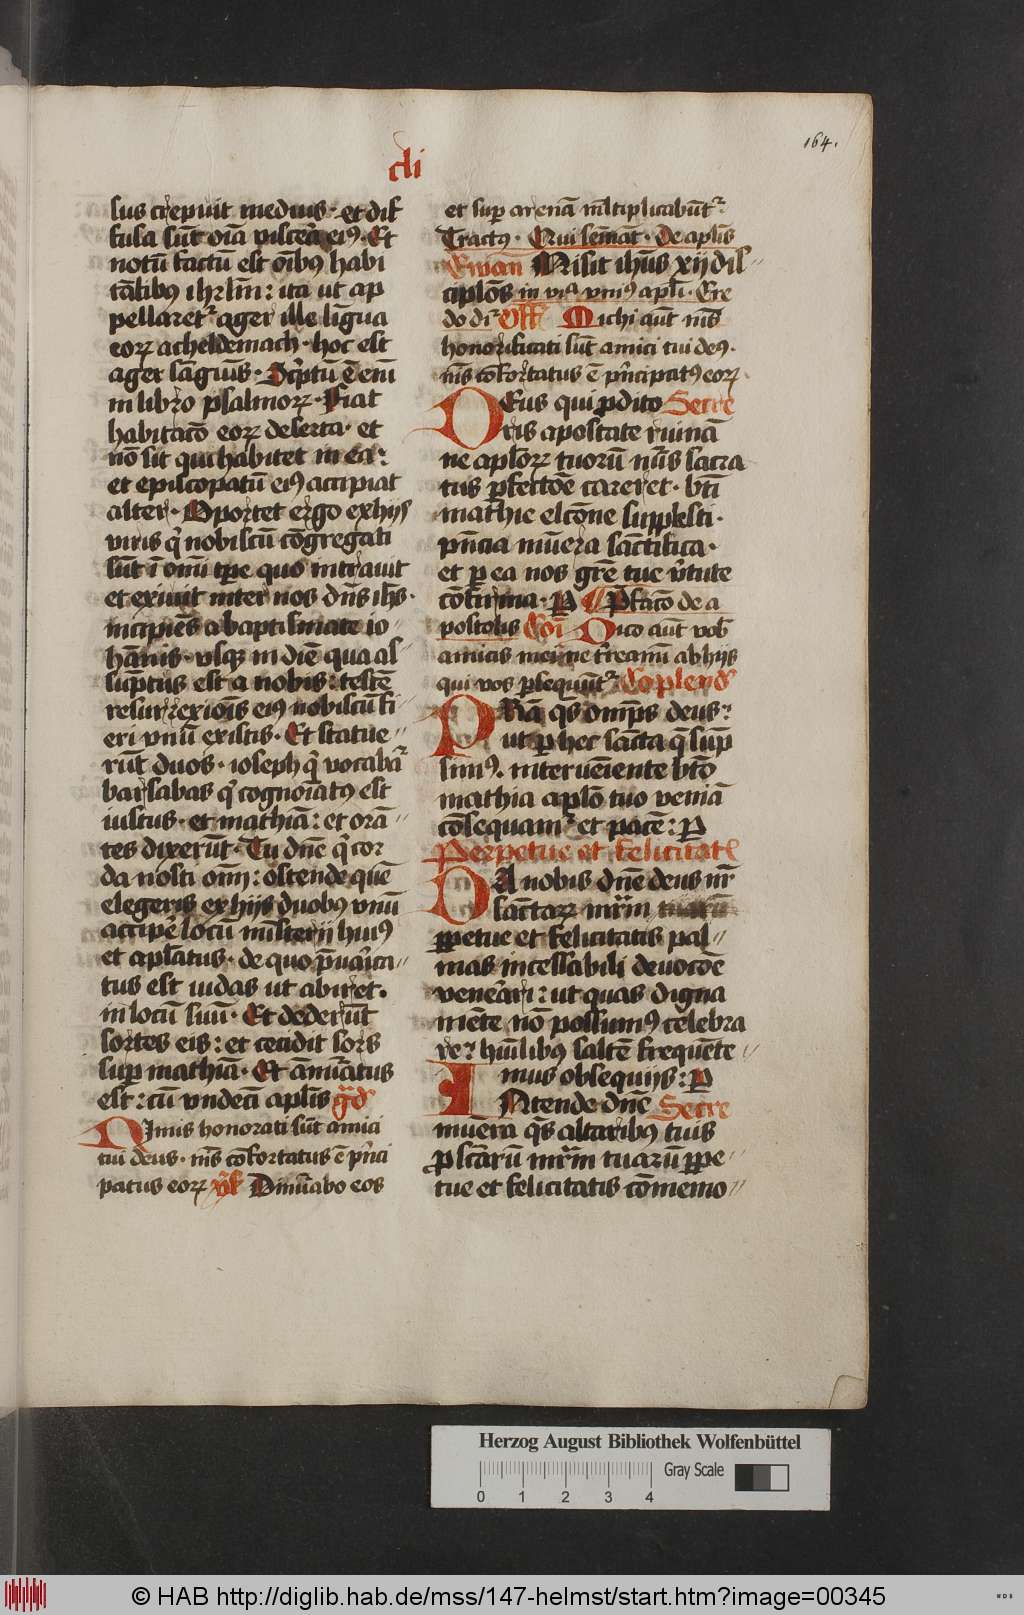 164.
cli
sus crepuit medius · et dif
fusa sūt oīa viscera ei⁹. Et
notū factū est oībus habi
tātibus ihrlm̄: ita ut ap
pellaretᷣ ager illa līgua
eoꝝ acheldemach · hoc est
ager sāguīs · Scptū ē enī
in libro psalmoꝝ · Fiat
habitacō eoꝝ deserta · et
nō sit qui habitet in ea:
et episcopatū ei⁹ accipiat
alter · Oportet ergo ex hijs
viris q̄ nobiscū cōgregati
sūt ī omī tpe quo intrauit
et exiuit inter nos dn̄s ihs̄ ·
incipiēs a baptismate io
hānis · vsqꝫ in diē qua as
sūptus est a nobis: testē
resurrexiōis ei⁹ nobiscū fi
eri vnū ex istis · Et statue
rūt duos · ioseph q̄ vocabaᷣ
barsabas q̄ cognoīat⁹ est
iustus · et mathiā: et orā
tes dixerūt · Tu dn̄e q̄ cor
da nosti om̄: ostende quē
elegeris ex hijs duobus vnū
accipe locū misterij hui⁹
et aplatus · de quo p̄uarica
tus est iudas ut abiret.
in locū suū · Et dederūt
sortes eis: et cecidit sors
sup mathiā · Et ānuatus
est: cū vndecī aplis grad
Nimis honorati sūt amici
tui deus · nīs cōfortatus ē pnci
patus eoꝝ Dinūabo eos
et sup arenā mltiplicabūtᷣ
Tractus · Qui semāt · De aplis
Ewan Misit ihus xij dis
ciplos in via vni⁹ apli · Cre
do diᷣ Off Michi aut nīs
honorificati sūt amici tui deus ·
nīs cōfortatus ē pncipat⁹ eoꝝ ·
Deus qui pdito Secre
ris apostate ruinā
ne aploꝝ tuorū nūs sacra
tus pfectōe careret · bti
mathie eltōne supplesti ·
pn̄cia mūera sāctifica ·
et p ea nos grē tue vtute
cōfirma · P Pfacō de a
postolis Cōi Dico aut vob
amicis meis ne treamī ab hijs
qui vos psequūtᷣ Coplend
Pra qs omps deus:
ut p hec sācta q̄ sūp
sim⁹. interueīente bto
mathia aplo tuo veniā
cōsequamᷣ et pacē: P
Perpetue et felicitat
Da nobis dn̄e deus nr̄
sāctaꝝ mrm̄ tuarū
ppetue et felicitatis pal
mas incessabili deuocōe
venerari: ut quas digna
mēte nō possum⁹ celebra
re: humlibus saltē frequēte
mus obsequijs: P
Intende dn̄e Secre
mūera qs altaribus tuis
p sctarū mrm̄ tuarū ppe
tue et felicitatis cōmemo
Herzog August Bibliothek Wolfenbüttel
Gray Scale
0 1 2 3 4
© HAB http://diglib.hab.de/mss/147-helmst/start.htm?image=00345